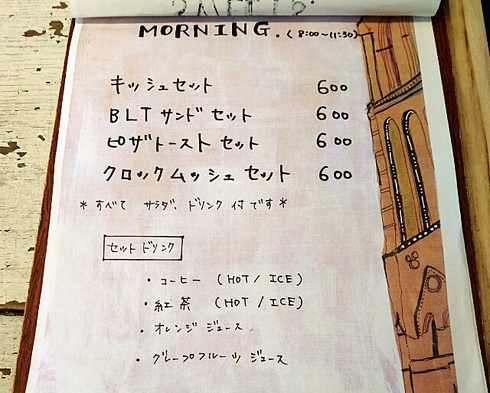 MORNING. (8:00~11:30)
キッシュセット 600
BLTサンドセット 600
ピザトーストセット 600
クロックムッシュセット 600
*すべて サラダ、ドリンク付です*
セットドリンク
・コーヒー (HOT / ICE)
・紅茶 (HOT / ICE)
・オレンジジュース
・グレープフルーツジュース